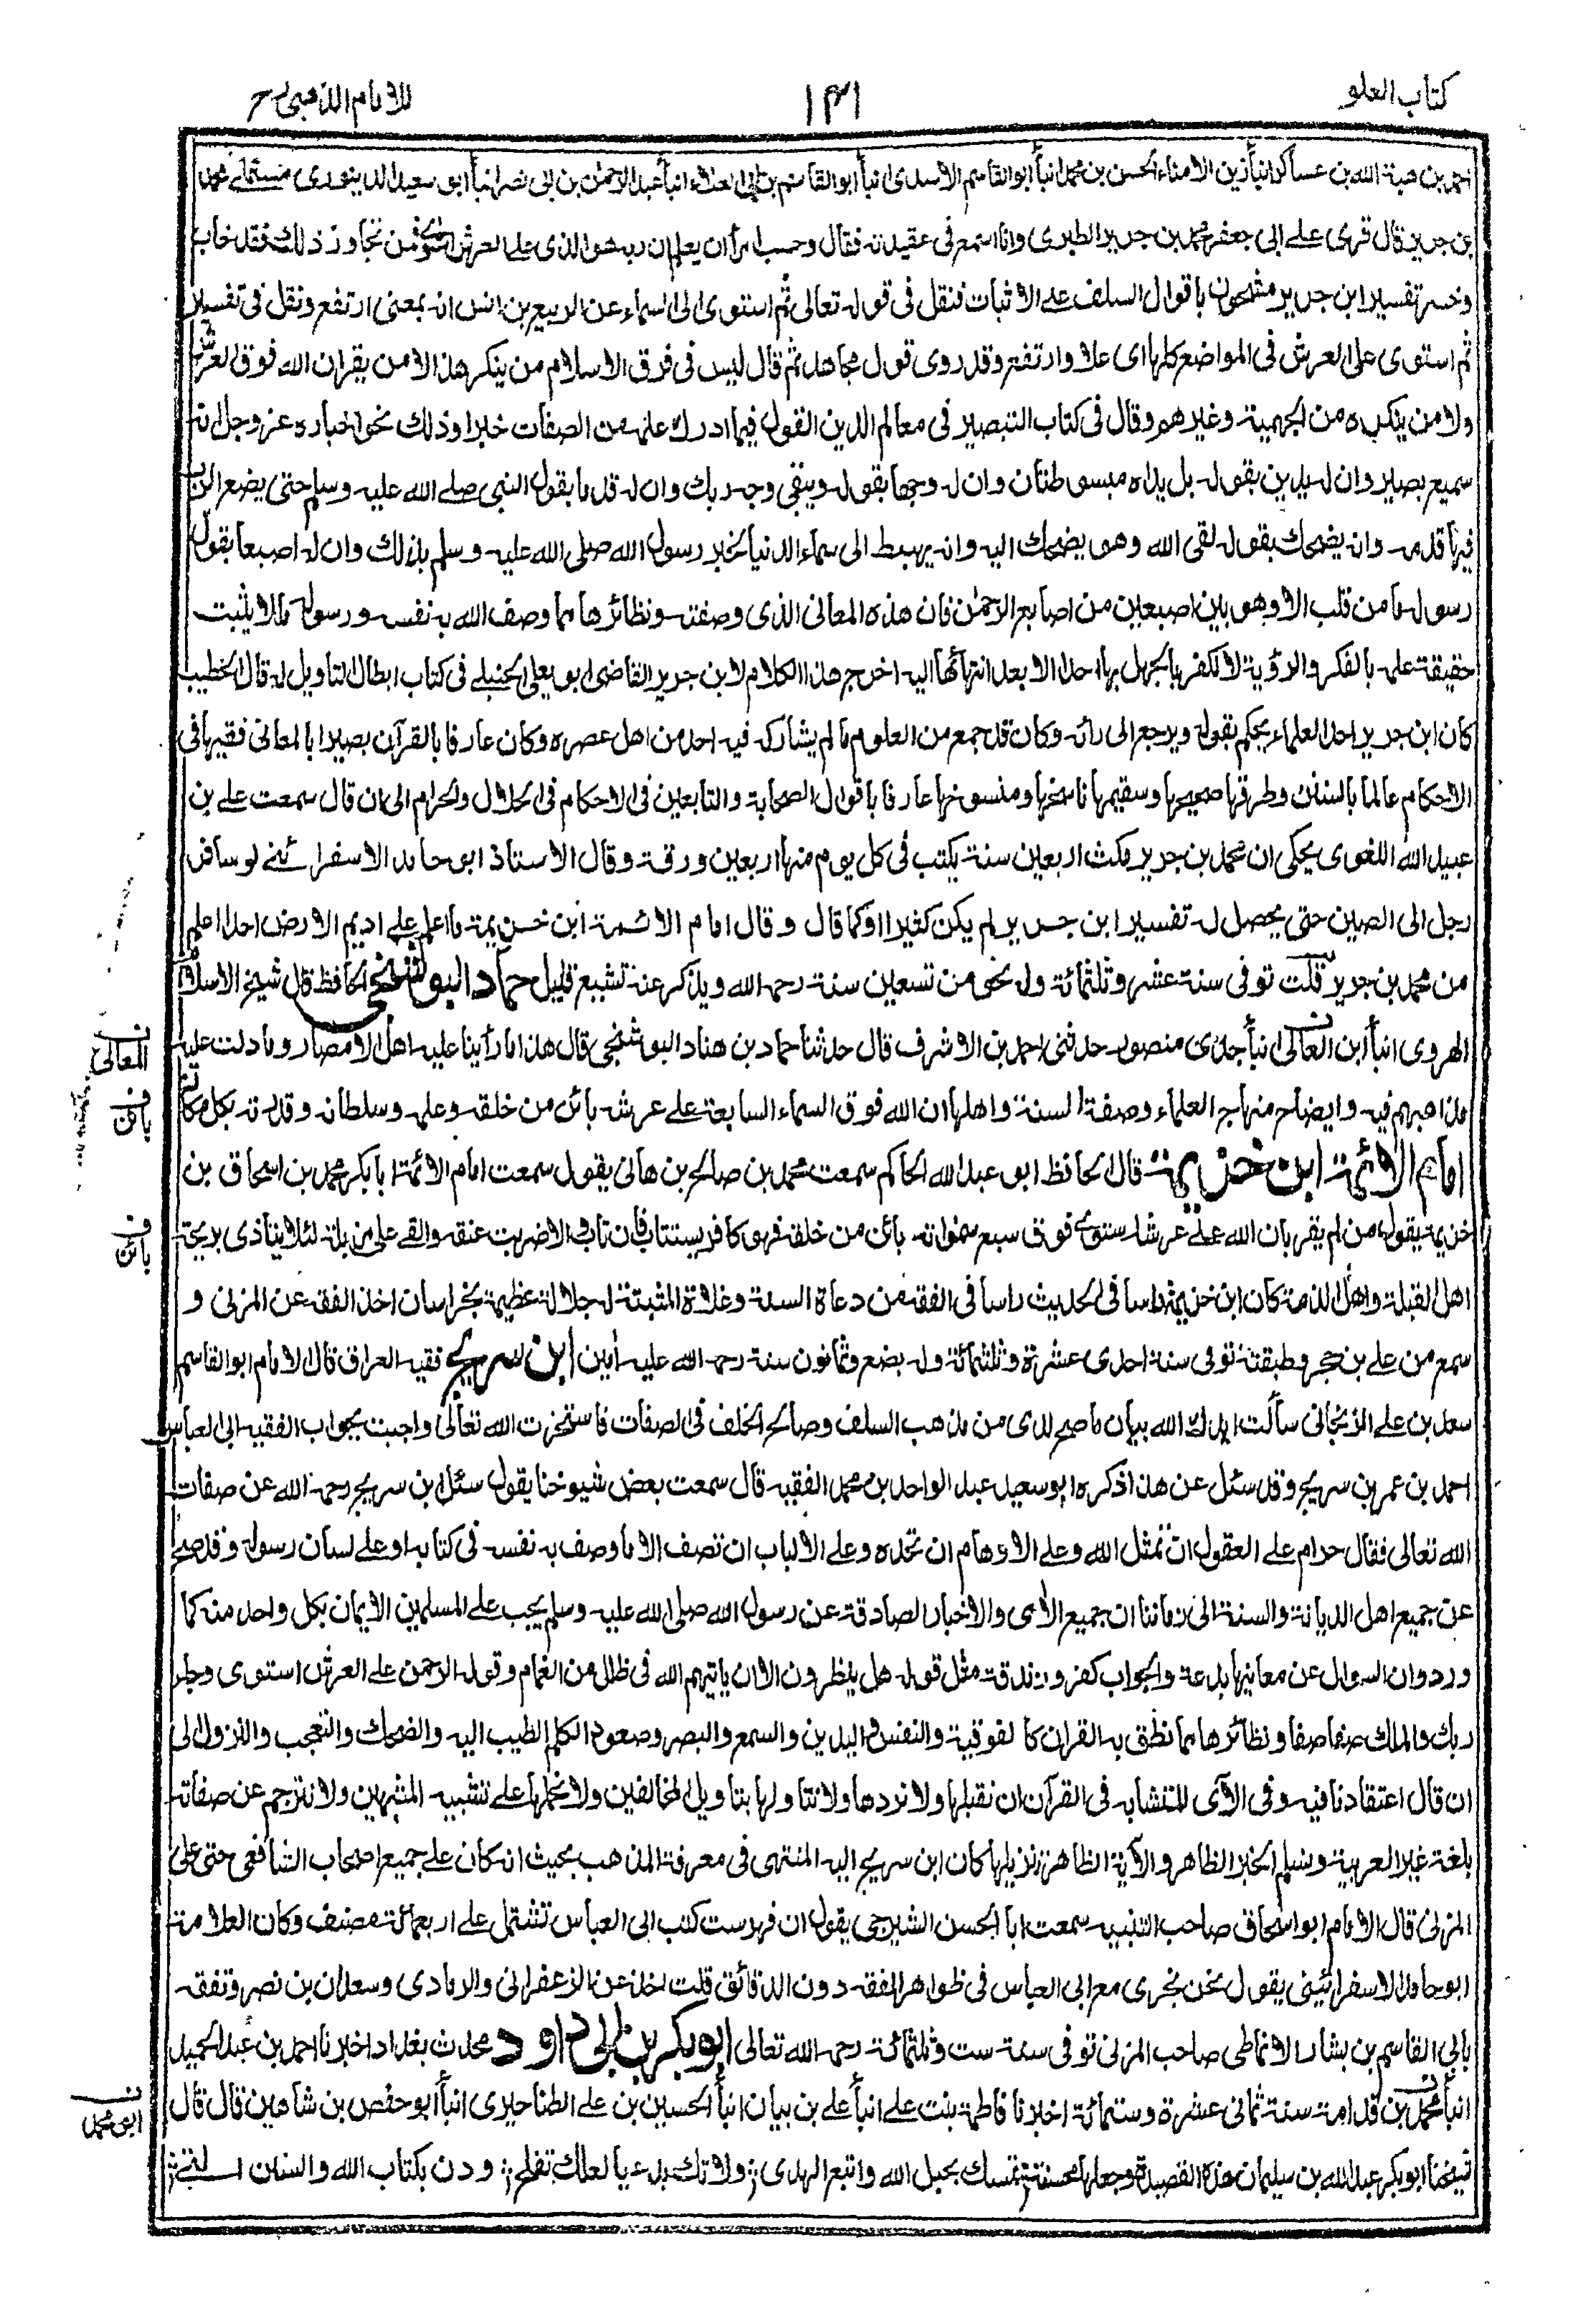 كتاب العلو
١٣١
للامام الذهبى رح
احمد بن هبة الله بن عساكر انبأ زين الامناء الحسن بن محمد انبأ ابوالقاسم الاسدى انبأ ابوالقاسم بن ابى العلاء انبأ عبد الرحمن بن ابى نصر انبأ ابو سعيد الدينورى مستملى محمد
بن جرير قال قرئ على ابى جعفر محمد بن جرير الطبرى وانا اسمع فى عقيدته فقال وحسب امرأ ان يعلم ان ربه هو الذى على العرش استوى فمن تجاوز ذلك فقد خاب
وخسر تفسير ابن جرير مشحون باقوال السلف على الاثبات فنقل فى قوله تعالى ثم استوى الى السماء عن الربيع بن انس انه بمعنى ارتفع ونقل فى تفسير
ثم استوى على العرش فى المواضع كلها اى علا وارتفع وقد روى قول مجاهد ثم قال ليس فى فرق الاسلام من ينكر هذا لا من يقر ان الله فوق العرش
ولا من ينكره من الجهمية وغيرهم وقال فى كتاب التبصير فى معالم الدين القول فيما ادرك علمه من الصفات خبرا وذلك نحو اخباره عز وجل انه
سميع بصير وان له يدين بقوله بل يداه مبسوطتان وان له وجها بقوله ويبقى وجه ربك وان له قدما بقول النبى صلى الله عليه وسلم حتى يضع الرب
فيها قدمه وانه يضحك بقوله لقى الله وهو يضحك اليه وانه يهبط الى سماء الدنيا لخبر رسول الله صلى الله عليه وسلم بذلك وان له اصبعا بقول
رسوله ما من قلب الا وهو بين اصبعين من اصابع الرحمن فان هذه المعانى الذى وصفته ونظائرها مما وصف الله به نفسه ورسوله مالا يثبت
حقيقة علمه بالفكر والرؤية لا نكفر بالجهل بها احدا الا بعد انتهائها اليه اخرج هذا الكلام لابن جرير القاضى ابو يعلى الحنبلى فى كتاب ابطال التاويل له قال الخطيب
كان ابن جرير احد العلماء يحكم بقوله ويرجع الى رائه وكان قد جمع من العلوم ما لم يشاركه فيه احد من اهل عصره وكان عارفا بالقرآن بصيرا بالمعانى فقيها فى
الاحكام عالما بالسنن وطرقها صحيحها وسقيمها ناسخها ومنسوخها عارفا باقوال الصحابة والتابعين فى الاحكام فى الحلال والحرام الى ان قال سمعت على بن
عبيد الله اللغوى يحكى ان محمد بن جرير مكث اربعين سنة يكتب فى كل يوم منها اربعين ورقة وقال الاستاذ ابو حامد الاسفرائنى لو سافر
رجل الى الصين حتى يحصل له تفسير ابن جرير لم يكن كثيرا او كما قال وقال امام الائمة ابن خزيمة ما اعلم على اديم الارض احدا اعلم
من محمد بن جرير قلت توفى سنة عشر وثلثمائة وله نحو من تسعين سنة رحمه الله ويذكر عنه تشيع قليل حماد البوشنجى الحافظ قال شيخ الاسلام
الهروى انبأ ابن العالى انبأ جدى منصور حدثنى احمد بن الاشرف قال حدثنا حماد بن هناد البوشنجى قال هذا ما رأينا عليه اهل الامصار وما دلت عليه
مذاهبهم فيه وايضاح منهاج العلماء وصفة السنة واهلها ان الله فوق السماء السابعة على عرشه بائن من خلقه وعلمه وسلطانه وقدرته بكل مكان
امام الائمة ابن خزيمة قال الحافظ ابو عبد الله الحاكم سمعت محمد بن صالح بن هانى يقول سمعت امام الائمة ابا بكر محمد بن اسحاق بن
خزيمة يقول من لم يقر بان الله على عرشه استوى فوق سبع سمواته بائن من خلقه فهو كافر يستتاب فان تاب والا ضربت عنقه والقى على مزبلة لئلا يتأذى بريحه
اهل القبلة واهل الذمة كان ابن خزيمة راسا فى الحديث راسا فى الفقه من دعاة السنة وغلاة المثبتة له جلالة عظيمة بخراسان اخذ الفقه عن المزنى و
سمع من على بن حجر وطبقته توفى سنة احدى عشرة وثلثمائة وله بضع وثمانون سنة رحمه الله عليه امين ابن سريج فقيه العراق قال الامام ابوالقاسم
سعد بن على الزنجانى سألت ايدك الله بيان ما صح لدى من مذهب السلف وصالح الخلف فى الصفات فاستخرت الله تعالى واجبت بجواب الفقيه ابى العباس
احمد بن عمر بن سريج وقد سئل عن هذا ذكره ابو سعيد عبد الواحد بن محمد الفقيه قال سمعت بعض شيوخنا يقول سئل ابن سريج رحمه الله عن صفات
الله تعالى فقال حرام على العقول ان تمثل الله وعلى الاوهام ان تحده وعلى الالباب ان تصف الا ما وصف به نفسه فى كتابه او على لسان رسوله وقد صح
عن جميع اهل الديانة والسنة الى زماننا ان جميع الآى والاخبار الصادقة عن رسول الله صلى الله عليه وسلم يجب على المسلمين الايمان بكل واحد منه كما
ورد وان السوال عن معانيها بدعة والجواب كفر وزندقة مثل قوله هل ينظرون الا ان ياتيهم الله فى ظلل من الغمام وقوله الرحمن على العرش استوى وجاء
ربك والملك صفا صفا ونظائرها مما نطق به القران كالفوقية والنفس واليدين والسمع والبصر وصعود الكلم الطيب اليه والضحك والتعجب والنزول الى
ان قال اعتقادنا فيه وفى الآى المتشابه فى القرآن ان نقبلها ولا نردها ولا نتاولها بتاويل المخالفين ولا نحملها على تشبيه المشبهين ولا نترجم عن صفاته
بلغة غير العربية ونسلم الخبر الظاهر والآية الظاهرة تنزيلها كان ابن سريج اليه المنتهى فى معرفة المذهب بحيث انه كان على جميع اصحاب الشافعى حتى على
المزنى قال الامام ابو اسحاق صاحب التنبيه سمعت ابا الحسن الشيرجى يقول ان فهرست كتب ابى العباس تشتمل على اربعمائة مصنف وكان العلامة
ابو حامد الاسفرائينى يقول نحن نجرى مع ابى العباس فى ظواهر الفقه دون الدقائق قلت اخذ عن الزعفرانى والرمادى وسعدان بن نصر وتفقه
بابى القاسم بن بشار الانماطى صاحب المزنى توفى سنة ست وثلثمائة رحمه الله تعالى ابو بكر بن ابى داود محدث بغداد اخبرنا احمد بن عبد الحميد
انبأ محمد بن قدامة سنة ثمانى عشرة وستمائة اخبرنا فاطمة بنت على انبأ على بن بيان انبأ الحسين بن على الطناجيرى انبأ ابو حفص بن شاهين قال قال
شيخنا ابو بكر عبد الله بن سليمان هذه القصيدة وجعلها محسنة تمسك بحبل الله واتبع الهدى ولا تك بدعيا لعلك تفلح ودن بكتاب الله والسنن التى
ن المعالى
ن بائن
ن بائن
ن ابو محمد